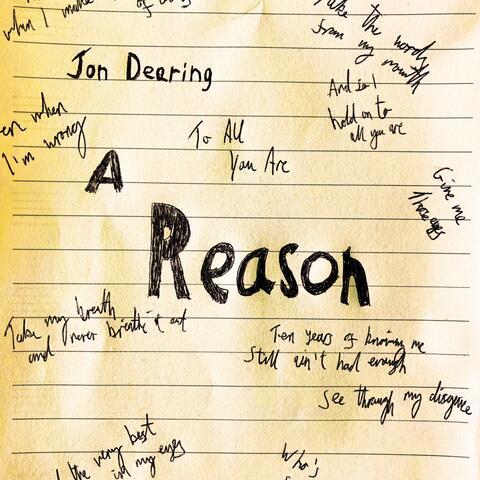 when I make
take the words
from my mouth
Jon Dearing
And so I
hold on to
all you are
en when
I'm wrong
To All
You Are
A
Give me
those eyes
Reason
Take my breath
and never breathe it out
Ten years of knowing me
Still ain't had enough
See through my disguise
the very best
in my eyes
Who's